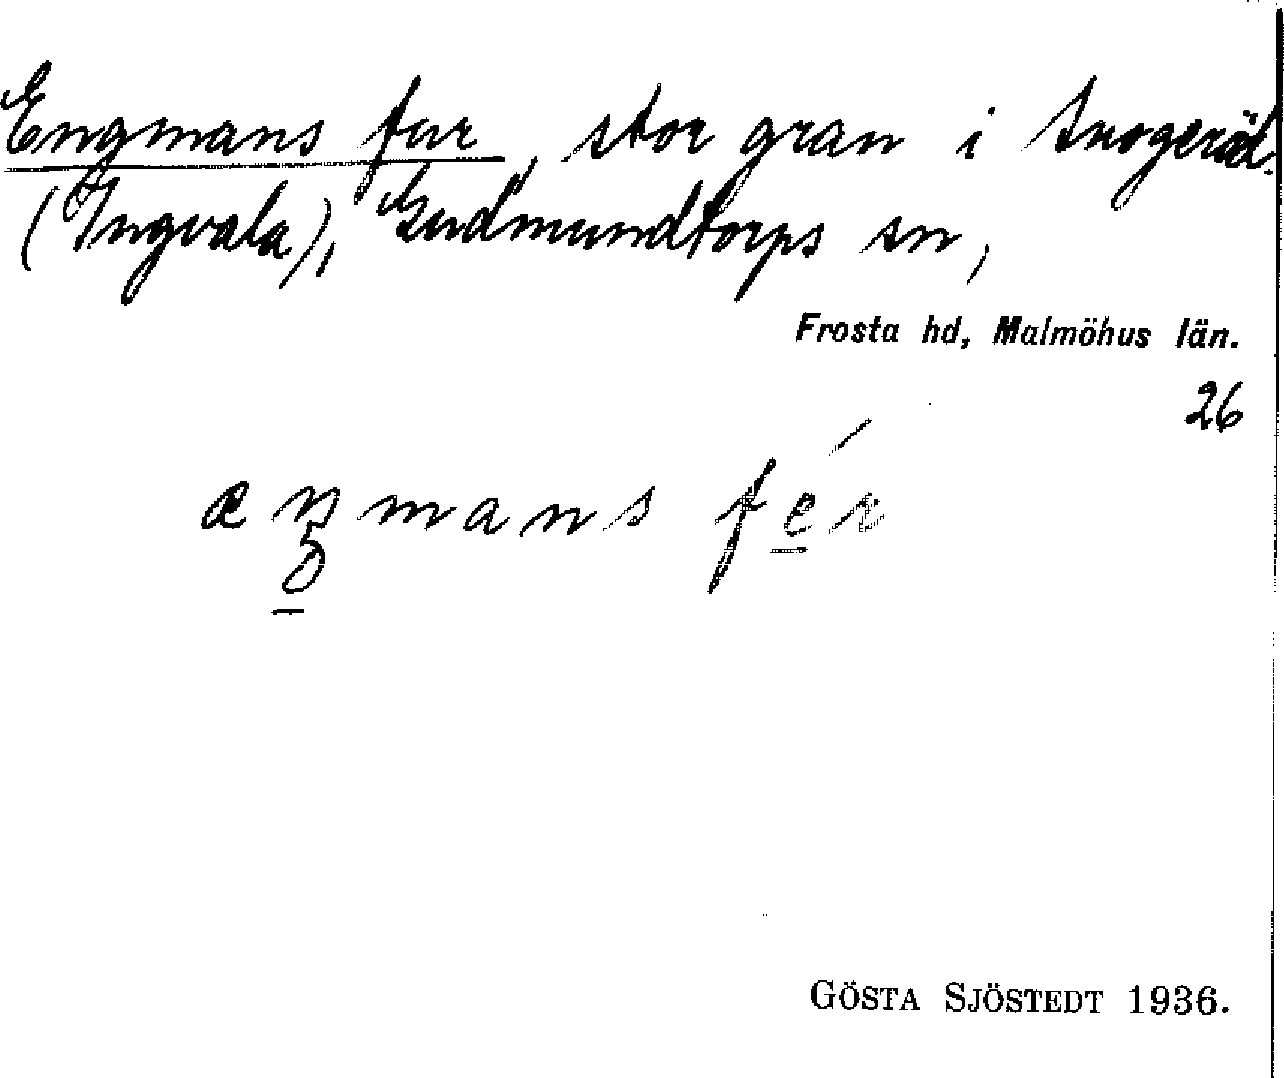 Engmans fur, stor gran i Snogeröd
(Ingvala), Gudmundtorps sn,
Frosta hd, Malmöhus län.
26
GÖSTA SJÖSTEDT 1936.